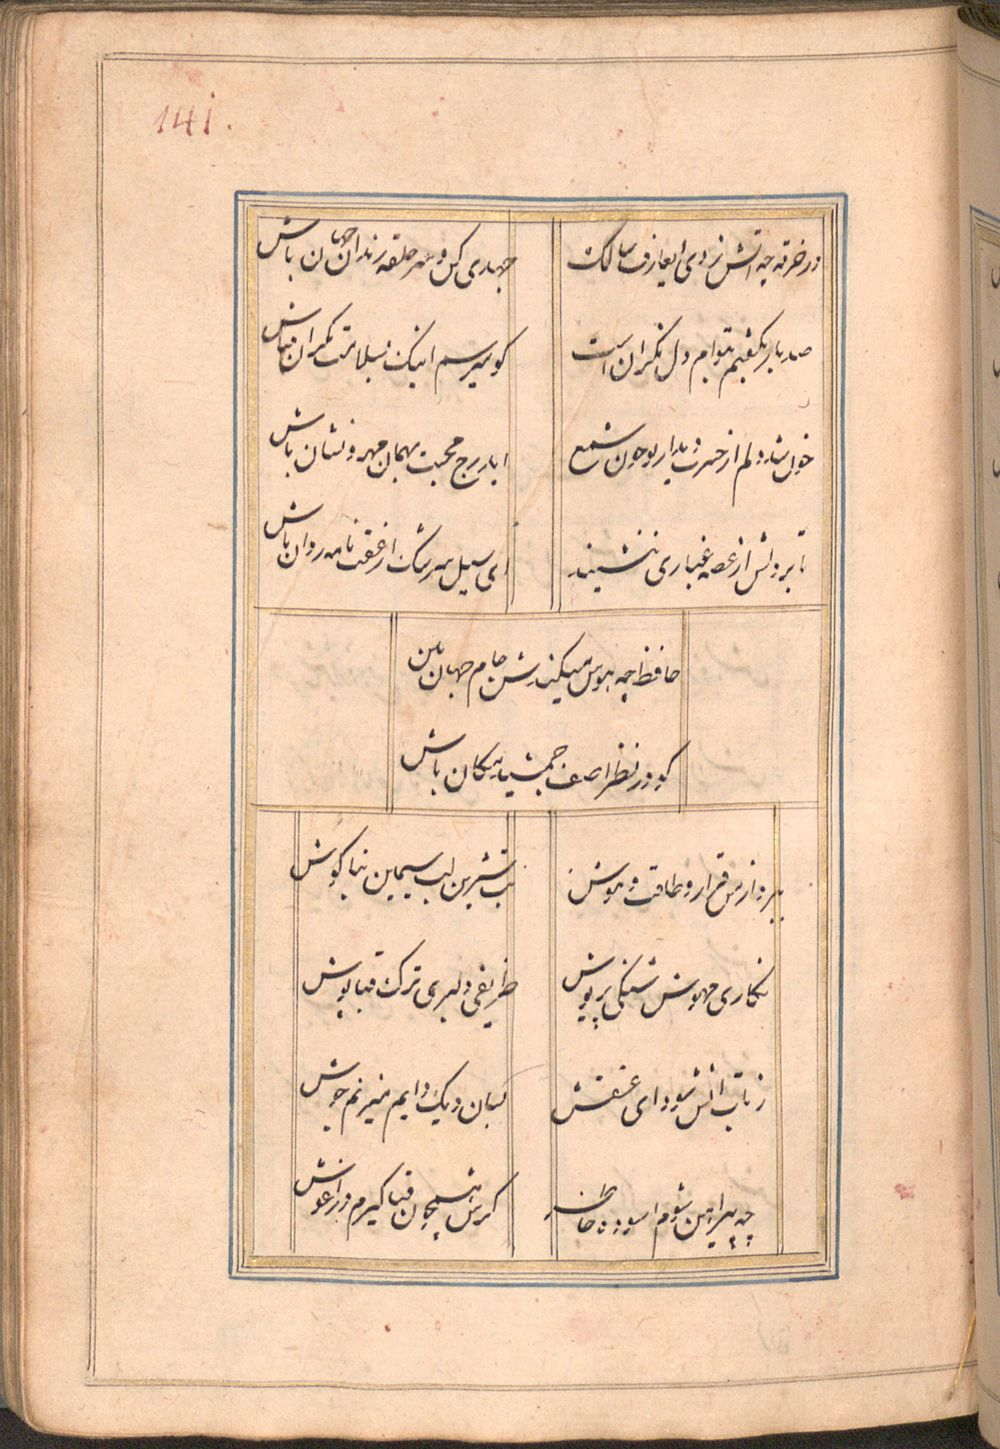 141.
در خرقه چه آتش زدی ایعارف سالک
جهدی کن و سر حلقه رندان جهان باش
صد بار بگفتیم بتوام دل نگران است
کو میرسم اینک بسلامت نگران مباش
خون شد دلم از حسرت دیدار تو چون شمع
ای درج محبت بهمان مهر و نشان باش
تا بر دلش از غصه غباری ننشیند
ای سیل سرشک از عقب نامه روان باش
حافظ چه هوس میکندش جام جهان بین
کو در نظر اصف جمشید مکان باش
ببرد از من قرار و طاقت و هوش
بت شیرین لب سیمین بناکوش
نکاری مهوش شنکی پریوش
ظریفی دلبری ترک قباپوش
ز تاب اتش سودای عشقش
بسان دیک دایم میزنم جوش
چه پیراهن شوم اسوده خاطر
کرش همچون قبا کیرم در اغوش